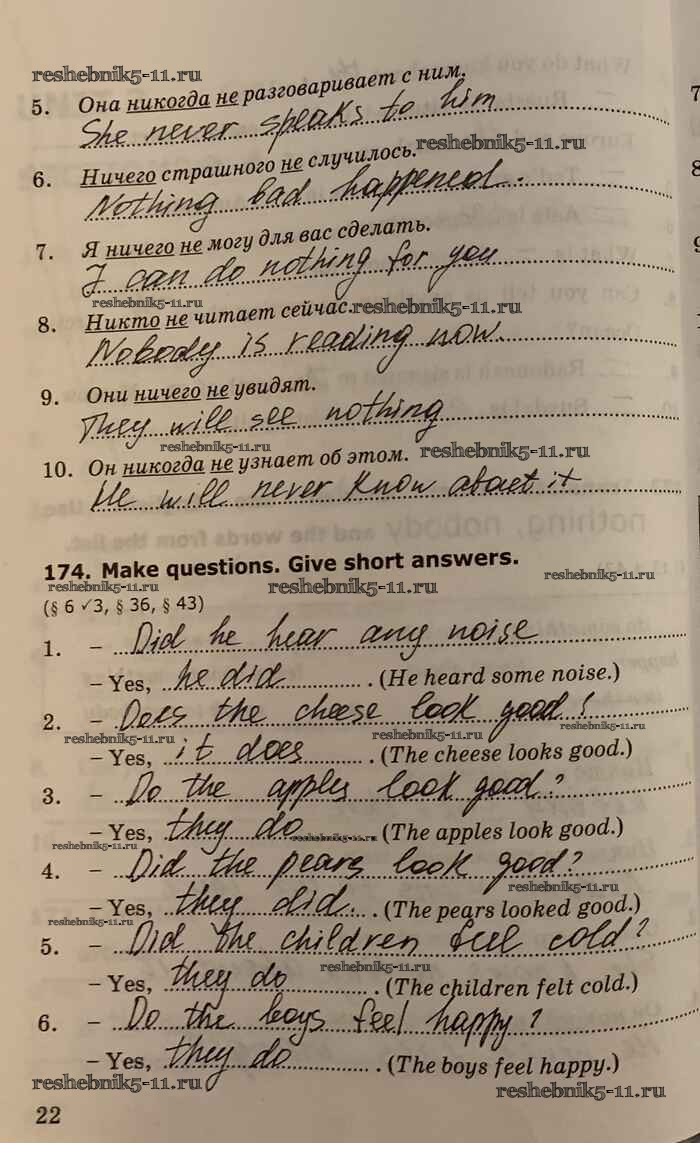 reshebnik5-11.ru
5. Она никогда не разговаривает с ним.
She never speaks to him
reshebnik5-11.ru
6. Ничего страшного не случилось.
Nothing bad happened.
7. Я ничего не могу для вас сделать.
I can do nothing for you
reshebnik5-11.ru
8. Никто не читает сейчас.
reshebnik5-11.ru
Nobody is reading now.
9. Они ничего не увидят.
They will see nothing
reshebnik5-11.ru
reshebnik5-11.ru
10. Он никогда не узнает об этом.
He will never know about it
174. Make questions. Give short answers.
reshebnik5-11.ru
reshebnik5-11.ru
reshebnik5-11.ru
(§ 6 ✓3, § 36, § 43)
1. – Did he hear any noise
– Yes, he did. (He heard some noise.)
2. – Does the cheese look good?
reshebnik5-11.ru
reshebnik5-11.ru
– Yes, it does. (The cheese looks good.)
3. – Do the apples look good?
– Yes, they do. (The apples look good.)
reshebnik5-11.ru
reshebnik5-11.ru
4. – Did the pears look good?
reshebnik5-11.ru
– Yes, they did. (The pears looked good.)
reshebnik5-11.ru
5. – Did the children feel cold?
reshebnik5-11.ru
– Yes, they do. (The children felt cold.)
6. – Do the boys feel happy?
– Yes, they do. (The boys feel happy.)
reshebnik5-11.ru
reshebnik5-11.ru
22